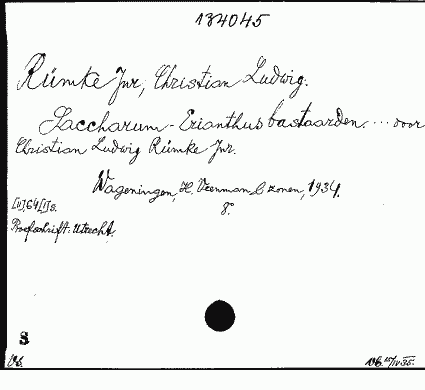 134045
Rümke Jnr, Christian Ludwig.
Saccharum-Erianthus bastaarden. ... door
Christian Ludwig Rümke Jnr.
Wageningen, H. Veenman & zonen, 1934.
8°.
[IV], 64 [1] s.
Proefschrift: Utrecht.
S